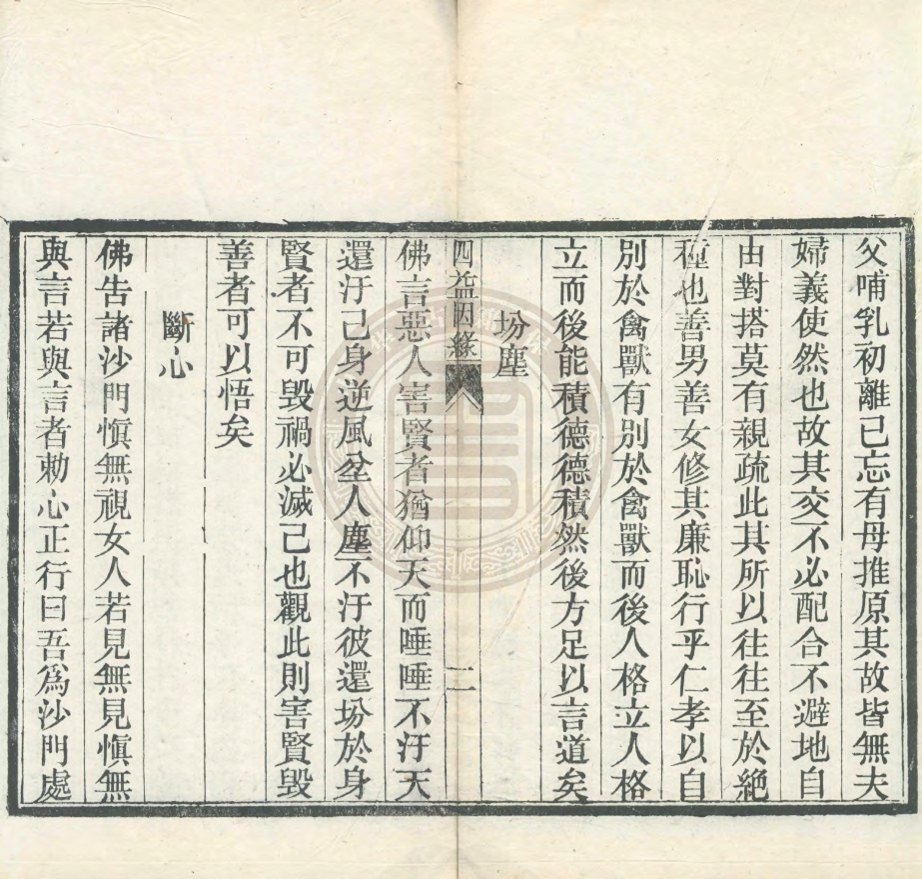 父哺乳初離已忘有母推原其故皆無夫
婦義使然也故其交不必配合不避地自
由對搭莫有親疏此其所以往往至於絶
種也善男善女修其廉恥行乎仁孝以自
別於禽獸有別於禽獸而後人格立人格
立而後能積德德積然後方足以言道矣
坋塵
四益因緣
二
佛言惡人害賢者猶仰天而唾唾不汙天
還汙己身逆風坌人塵不汙彼還坋於身
賢者不可毀禍必滅己也觀此則害賢毀
善者可以悟矣
斷心
佛告諸沙門愼無視女人若見無見愼無
與言若與言者勅心正行曰吾爲沙門處